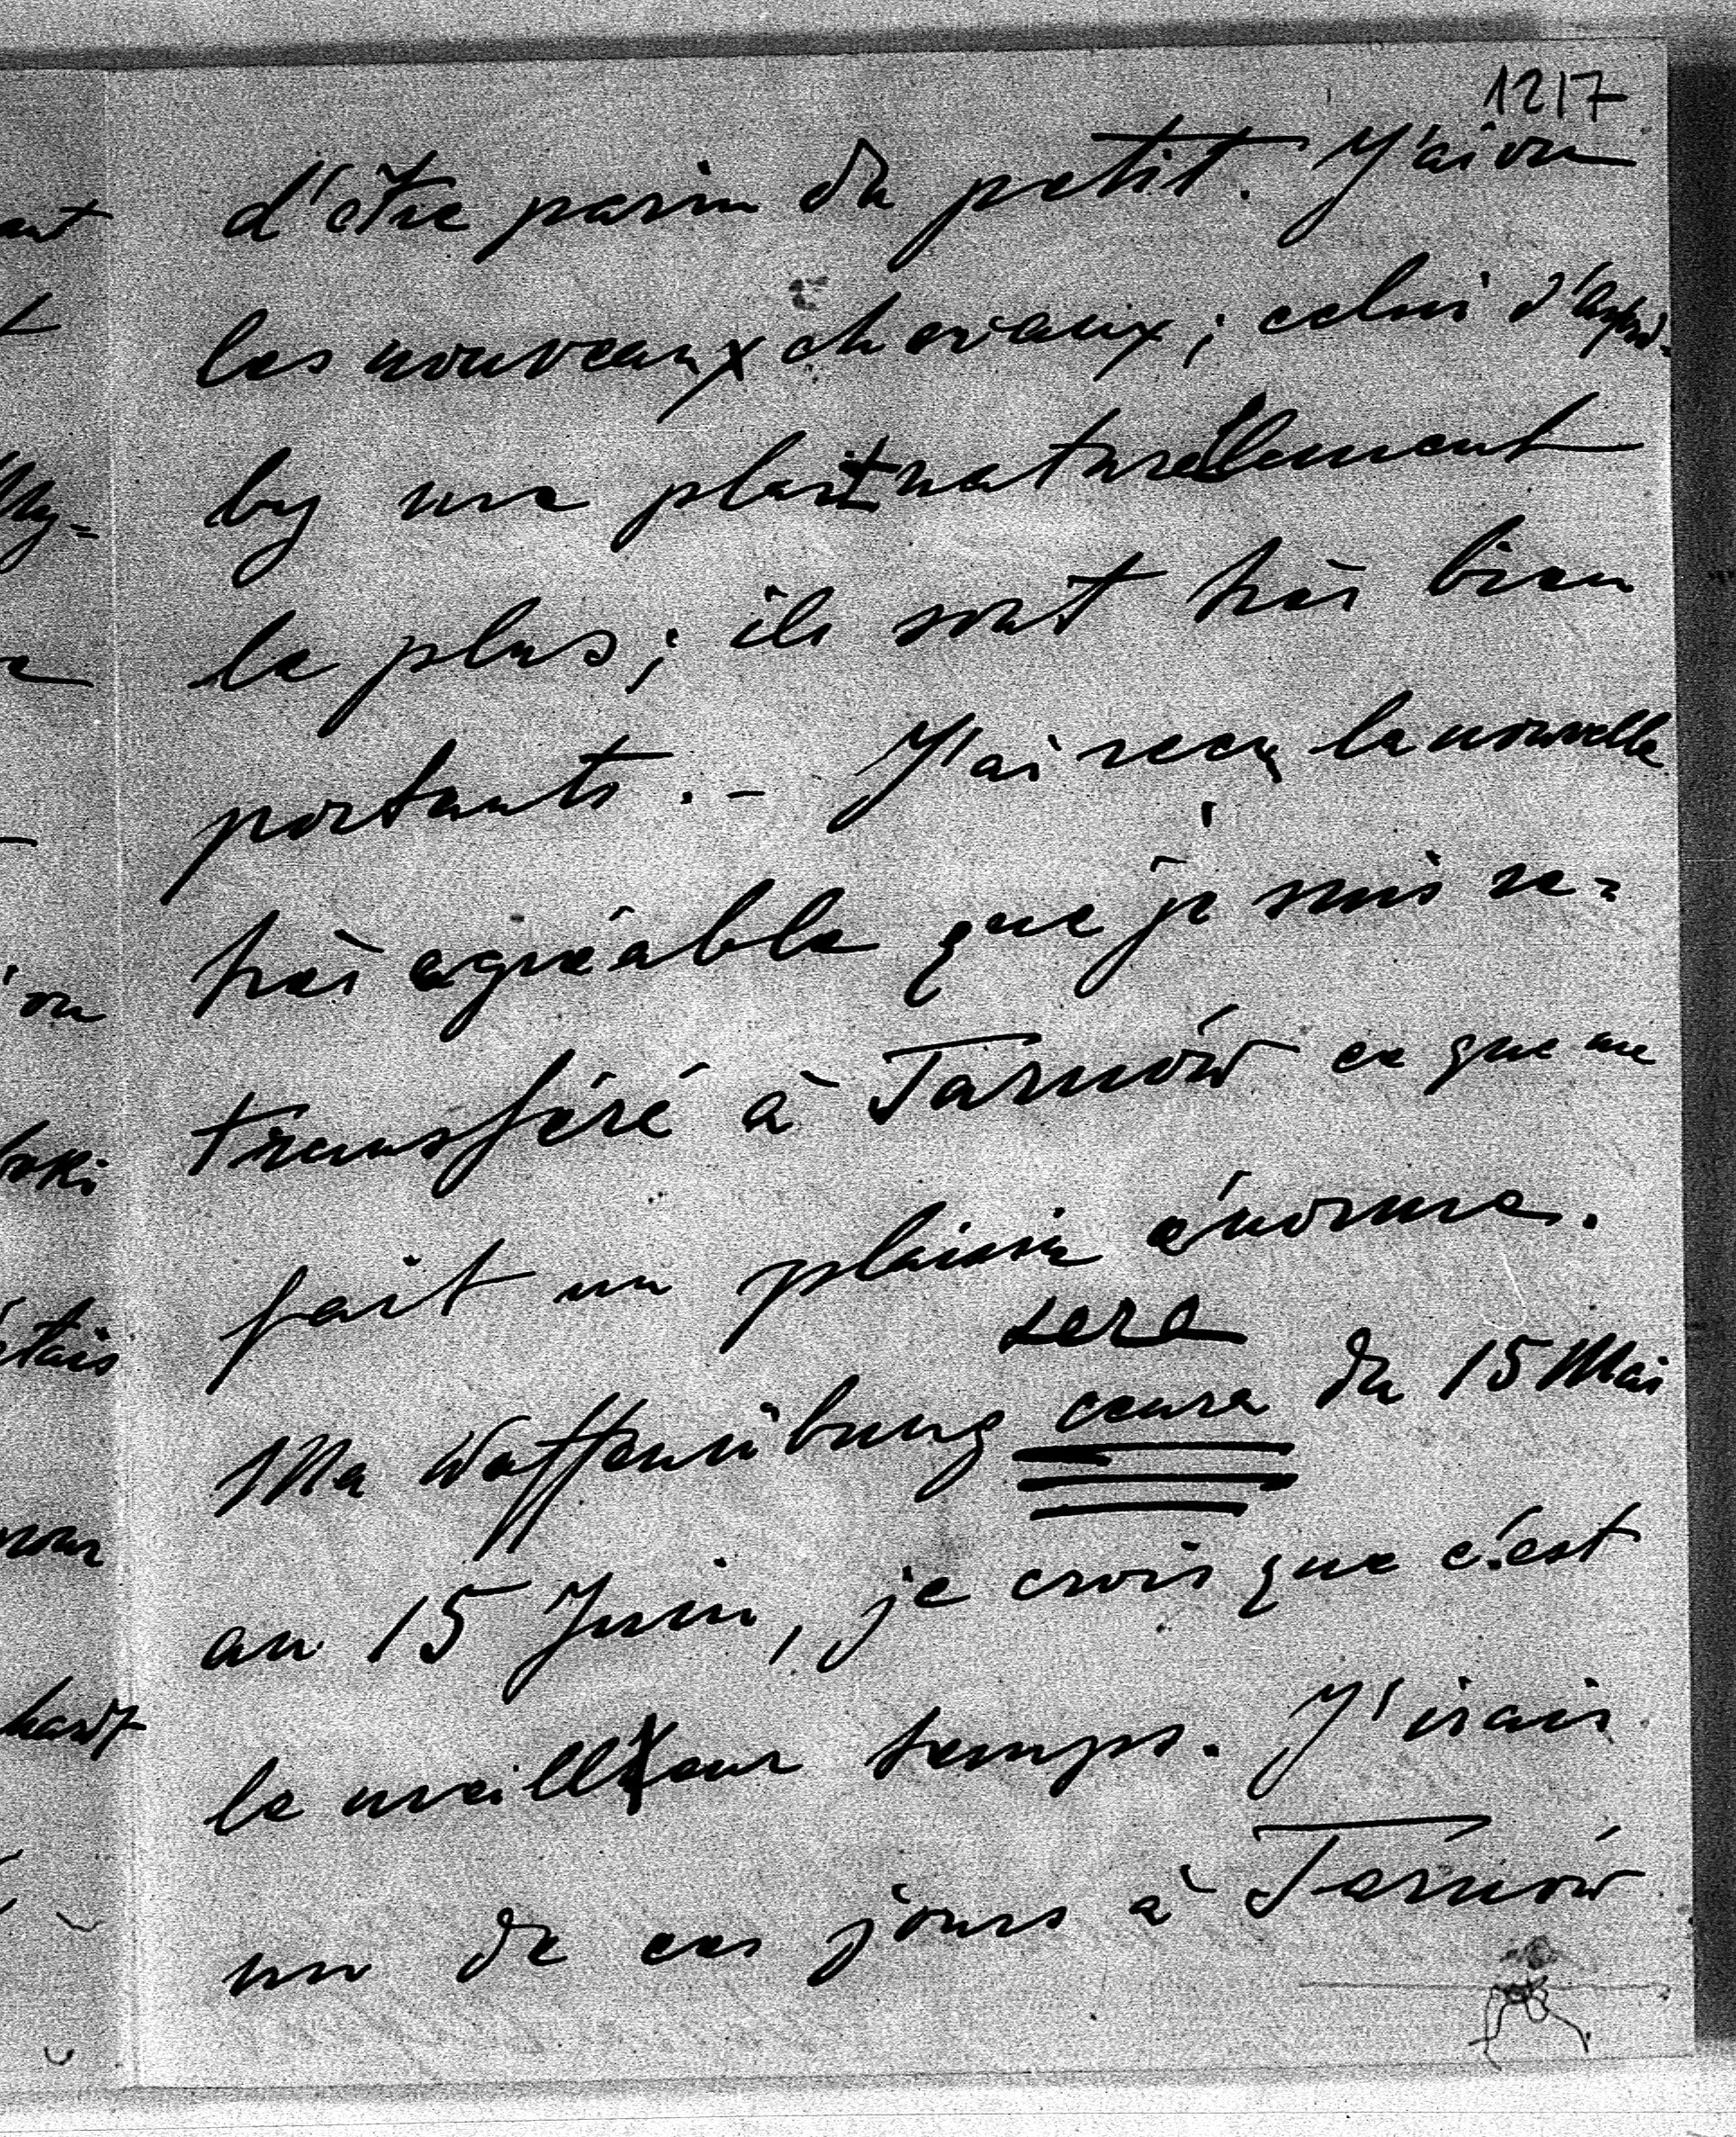 1217
d'être parin du petit. J'ai vu
ant
les nouveaux chevaux; celui d'
by me plait naturellement
le plus; ils sont très bien
portants. - J'ai reçu la nouvelle
très agréable que je suis re=
'on
transféré à Tarnów ce que me
ski
fait un plaisir énorme.
sera
étais
Ma Waffenübung ceura du 15 Mai
au 15 Juin, je crois que c'est
le meilleur temps. J'irais
un de ces jours à Tarnów